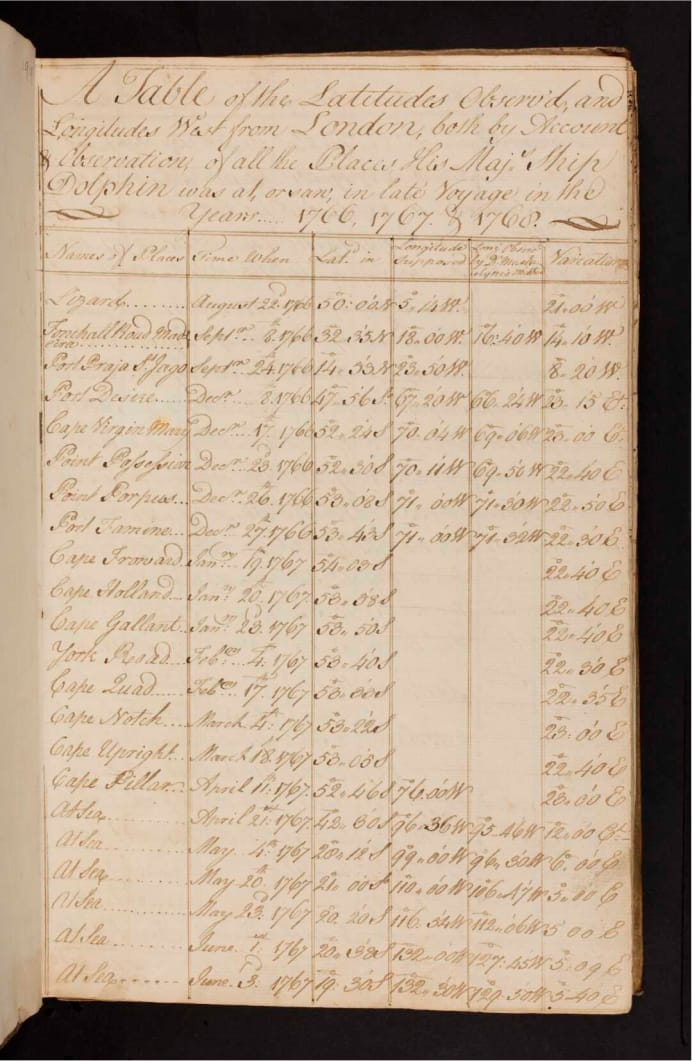 A Table of the Latitudes Observ'd, and
Longitudes West from London, both by Account
& Observation, of all the Places His Maj.s Ship
Dolphin was at, or saw, in late Voyage in the
Years..... 1766, 1767. & 1768.
Names of Places Time When Lat.d in Longitude Supposed Long. by D.r Variation
Lizard......... August 22.d 1766 50°: 00'N 5°. 14'W. 21°. 00'W
Sept.r 8. 1766 32°. 33'N 18°. 00'W. 16°: 40'W 14°. 10'W.
Port Praja S.t Jago Sept.r 24.th 1766 14°. 53'N 23°. 50'W. 8°. 20'W.
Port Desire...... Dec.r 8. 1766 47°. 56'S 67°. 20'W 66°. 24'W 23°. 15'E.
Cape Virgin Mary Dec.r 17.th 1766 52°. 24'S 70°. 04'W 69°. 06'W 23°. 00'E.
Point Possession Dec.r 23.d 1766 52°. 30'S 70°. 11'W 69°. 50'W 22°. 40'E
Point Porpus... Dec.r 26.th 1766 53°. 08'S 71°. 00'W 71°. 30'W 22°. 50'E
Port Famine... Dec.r 27.th 1766 53°. 43'S 71°. 00'W 71°. 32'W 22°. 30'E
Cape Froward. Jan.ry 19.th 1767 54°. 03'S 22°. 40'E
Cape Holland... Jan.ry 20.th 1767 53°. 58'S 22°. 40'E
Cape Gallant.. Jan.ry 23.d 1767 53°. 50'S 22°. 40'E
York Road.... Feb.ry 4.th 1767 53°. 40'S 22°. 30'E
Cape Quad.... Feb.ry 17.th 1767 53°. 33'S 22°. 35'E
Cape Notch.... March 4.th 1767 53°. 22'S 23°: 00'E
Cape Upright... March 18. 1767 53°. 05'S 22°. 40'E
Cape Pillar... April 11.th 1767 52°. 46'S 76°. 00'W 23°. 00'E
At Sea......... April 21.st 1767 42°. 30'S 96°. 36'W 95°. 46'W 12°. 00'E.
At Sea......... May 4.th 1767 28°. 12'S 99°. 00'W 96°. 30'W 6°. 00'E
At Sea......... May 20.th 1767 21°. 00'S 110°. 00'W 106°. 47'W 5°. 00'E
At Sea......... May 23.d 1767 20. 20'S 116°. 54'W 112°. 06'W 5 00 E
At Sea......... June. 1.st 1767 20°. 38'S 132°. 00'W 127°: 45'W 5°: 09'E
At Sea....... June. 3.d 1767 19°. 30'S 132°. 30'W 129°. 50'W 5°. 40'E